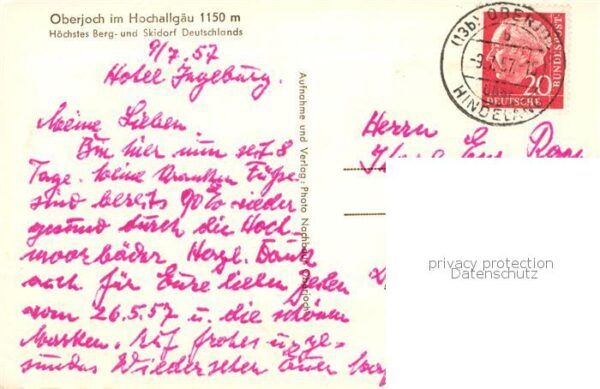 Oberjoch im Hochallgäu 1150 m
Höchstes Berg- und Skidorf Deutschlands
9/7.57
Hotel Ingeburg.
Meine Lieben.
Bin hier nun seit 8
Tage. Meine kranken Füße
sind bereits 90% wieder
gesund durch die Hoch-
moorbäder Herzl. Dank
auch für Eure lieben Zeilen
vom 26.5.57 u. die schönen
Marken. Auf frohes u. ge-
sundes Wiedersehen Euer
Aufnahme und Verlag: Photo Nachbaur Oberjoch
(13b) OBERJOCH
-9.7.57
HINDELANG
DEUTSCHE
BUNDESPOST
20
Herrn
Karl
privacy protection
Datenschutz